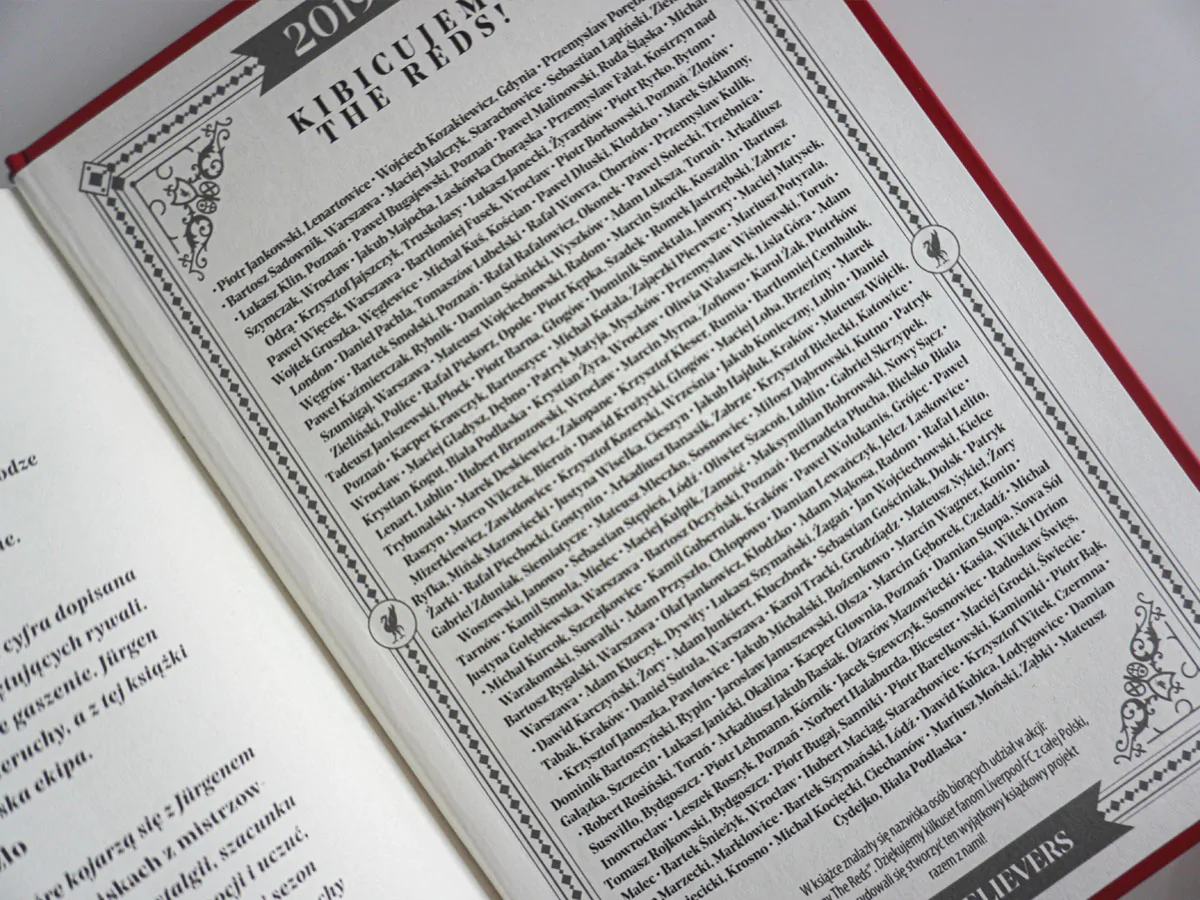 odze
ac.
cyfra dopisana
ętujących rywali.
e gaszenie. Jürgen
eruchy, a z tej książki
ska ekipa.
Mo
óre kojarzą się z Jürgenem
iskach z mistrzow-
ostalgii, szacunku
ocji i uczuć,
sezon
chy
2019
KIBICUJEMY
THE REDS!
• Piotr Jankowski, Lenartowice • Wojciech Kozakiewicz, Gdynia • Przemysław Poręb
• Bartosz Sadownik, Warszawa • Maciej Malczyk, Starachowice • Sebastian Łapiński, Ziel
• Łukasz Klin, Poznań • Paweł Bugajewski, Poznań • Paweł Malinowski, Ruda Śląska • Michał
Szymczak, Wrocław • Jakub Majocha, Laskówka Chorąska • Przemysław Fałat, Kostrzyn nad
Odrą • Krzysztof Jajszczyk, Truskolasy • Łukasz Janecki, Żyrardów • Piotr Ryrko, Bytom •
Paweł Więcek, Warszawa • Bartłomiej Fusek, Wrocław • Piotr Borkowski, Poznań Złotów •
Wojtek Gruszka, Węglewice • Michał Kuś, Kościan • Paweł Dłuski, Kłodzko • Marek Szklanny,
London • Daniel Pachla, Tomaszów Lubelski • Rafał Wowra, Chorzów • Przemysław Kulik,
Węgrów • Bartek Smolski, Poznań • Rafał Rafałowicz, Okonek • Paweł Solecki, Trzebnica •
Paweł Kaźmierczak, Rybnik • Damian Sośnicki, Wyszków • Adam Łuksza, Toruń • Arkadiusz
Szumigaj, Warszawa • Mateusz Wojciechowski, Radom • Marcin Szocik, Koszalin • Bartosz
Zieliński, Police • Rafał Piekorz, Opole • Piotr Kępka, Szadek • Romek Jastrzębski, Zabrze •
Tadeusz Janiszewski, Płock • Piotr Barna, Głogów • Dominik Smektała, Jawory • Maciej Matysek,
Poznań • Kacper Krawczyk, Bartoszyce • Michał Kotala, Zajączki Pierwsze • Mariusz Potyrała,
Wrocław • Maciej Gładysz, Dębno • Patryk Matyja, Myszków • Przemysław Wiśniewski, Toruń •
Krystian Kogut, Biała Podlaska • Krystian Żyra, Wrocław • Oliwia Walaszek, Lisia Góra • Adam
Lenart, Lublin • Hubert Brzozowski, Wrocław • Marcin Myrna, Zoflowo • Karol Żak, Piotrków
Trybunalski • Marek Deskiewicz, Zakopane • Krzysztof Klesser, Rumia • Bartłomiej Cembaluk
Raszyn • Marco Wilczek, Bieruń • Dawid Krużycki, Głogów • Maciej Loba, Brzeziny • Marek
Mizerkiewicz, Zawidowice • Krzysztof Kozerski, Września • Jakub Konieczny, Lubin • Daniel
Ryfka, Mińsk Mazowiecki • Justyna Wisełka, Cieszyn • Jakub Hajduk, Kraków • Mateusz Wójcik,
Żarki • Rafał Piechocki, Gostynin • Arkadiusz Banasik, Zabrze • Krzysztof Bielecki Katowice •
Gabriel Zduniak, Siemiatycze • Mateusz Mleczko, Sosnowiec • Miłosz Dąbrowski, Kutno • Patryk
Waszewski, Janowo • Sebastian Stępień, Łódź • Oliwier Szacoń, Lublin • Gabriel Skrzypek,
Tarnów • Kamil Smoła, Mielec • Maciej Kulpik, Zamość • Maksymilian Bobrowski, Nowy Sącz •
Justyna Gołębiewska, Warszawa • Bartosz Oczyński, Poznań • Bernadetta Plucha, Bielsko Biała
• Michał Kurcok, Szczejkowice • Kamil Guberniak, Kraków • Paweł Wolukanis, Grójec • Paweł
Warakomski, Suwałki • Adam Przyszło, Chłopowo • Damian Lewańczyk, Jelcz Laskowice •
Bartosz Rygalski, Warszawa • Olaf Jankowicz, Kłodzko • Adam Mąkosa, Radom • Rafał Lelito,
Warszawa • Adam Kluczyk, Dywity • Łukasz Szymański, Żagań • Jan Wojciechowski, Kielce
• Dawid Karczyński, Żory • Adam Junkiert, Kluczbork • Sebastian Gościniak, Dolsk • Patryk
Tabak, Kraków • Daniel Sutuła, Warszawa • Karol Tracki, Grudziądz • Mateusz Nykiel, Żory
• Krzysztof Janoszka, Pawłowice • Jakub Michalski, Bożenkowo • Marcin Wagner, Konin •
Dominik Bartoszyński, Rypin • Jarosław Januszewski, Olsza • Marcin Gęborek, Czeladź • Michał
Gałązka, Szczecin • Łukasz Janicki, Okalina • Kacper Głownia, Poznań • Damian Stopa, Nowa Sól
• Robert Rosiński, Toruń • Arkadiusz Jakub Basiak, Ożarów Mazowiecki • Kasia, Witek i Orion
Suswiłło, Bydgoszcz • Piotr Lehmann, Kórnik • Jacek Szewczyk, Sosnowiec • Radosław Święs,
Inowrocław • Leszek Roszyk, Poznań • Norbert Hałaburda, Bicester • Maciej Grocki, Świecie •
Tomasz Rojkowski, Bydgoszcz • Piotr Bugaj, Sanniki • Piotr Barełkowski, Kamionki • Piotr Bąk,
Malec • Bartek Śnieżyk, Wrocław • Hubert Maciąg, Starachowice • Krzysztof Witek, Czermna •
Marzecki, Marklowice • Bartek Szymański, Łódź • Dawid Kubica, Łodygowice • Damian
ięcicki, Krosno • Michał Kocięcki, Ciechanów • Mariusz Moński, Ząbki • Mateusz
Cydejko, Biała Podlaska •
W książce znalazły się nazwiska osób biorących udział w akcji:
y The Reds". Dziękujemy kilkuset fanom Liverpool FC z całej Polski,
ydowali się stworzyć ten wyjątkowy książkowy projekt
razem z nami!
ELIEVERS